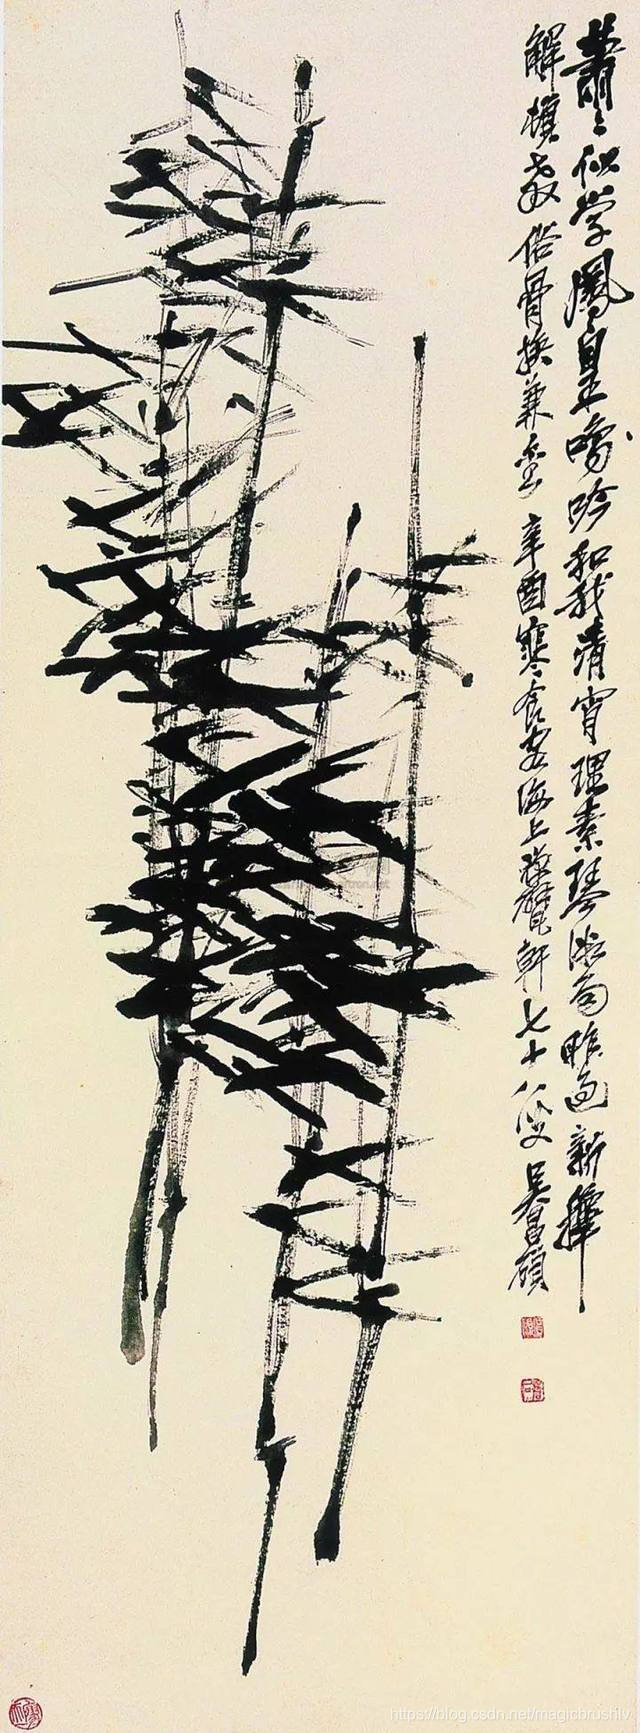 蕭〻似學鳳皇鳴吟和我清宵理素琴雨昨過新籜
解橫教俗骨換兼金 辛酉寒食客海上禪甓軒七十八叟 吳昌碩
https://blog.csdn.net/magicbrushlv